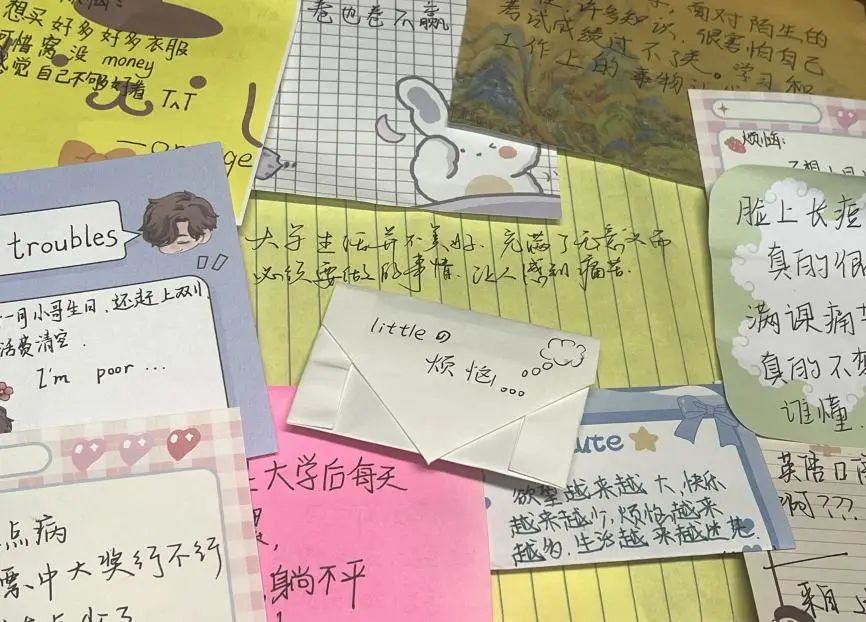 想买好多好多衣服
可惜窝没 money
感觉自己不够好看 TAT
卷也卷不赢
许多知识，很害怕自己
面对陌生的
考试成绩过不了关。学习和
工作上的事物
troubles
一月小哥生日，还赶上双11，
活费清空.
I'm poor ...
大学生活并不美好，充满了无意义而
必须要做的事情，让人感到痛苦.
little の
烦恼...
烦恼:
脸上长痘
真的很
满课痛苦
真的不想
谁懂
英语口语
啊???
来自
大学后每天
身尚不平
cute
欲望越来越大，快乐
越来越少，烦恼越来
越多，生活越来越迷茫
点病
票、中大奖行不行